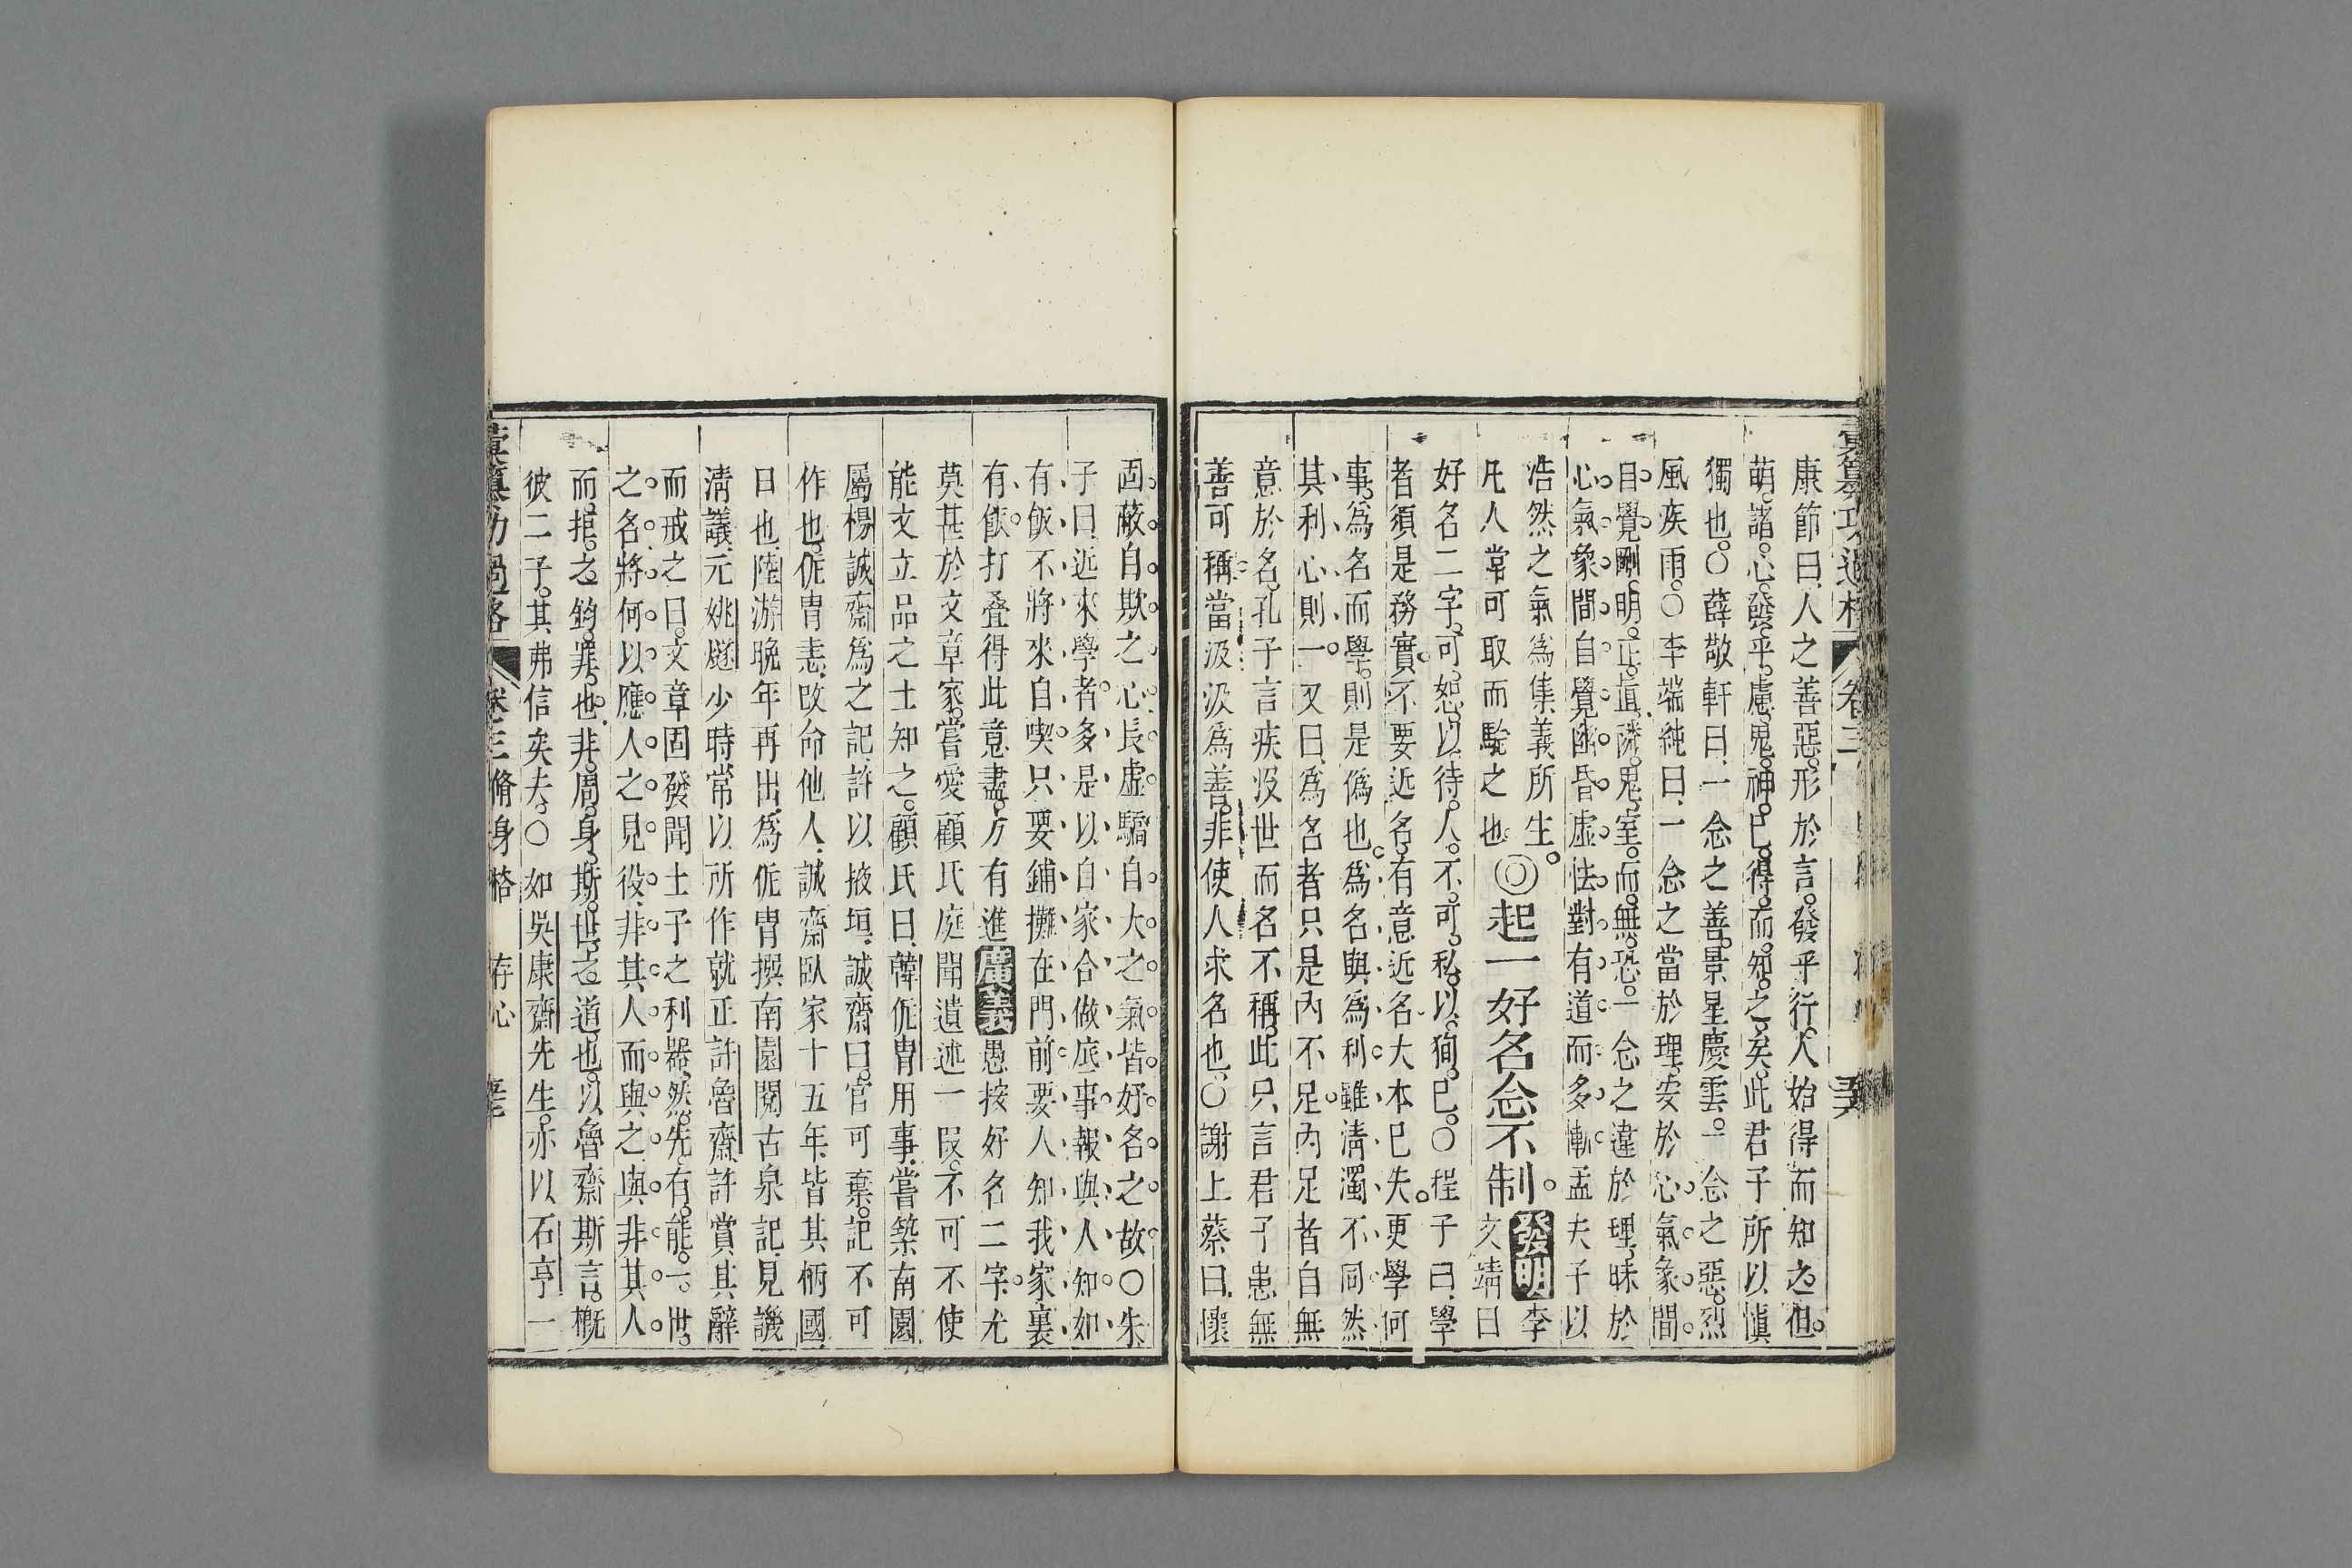 彙纂功過格 卷三
康節曰人之善惡形於言發乎行人始得而知之但
萌諸心發乎慮鬼神已得而知之矣此君子所以愼
獨也〇薛敬軒曰一念之善景星慶雲一念之惡烈
風疾雨〇李端純曰一念之當於理安於心氣象間
自覺剛明正直隣鬼室而無恐一念之違於理昧於
心氣象間自覺幽昏虛怯對有道而多慚孟夫子以
浩然之氣爲集義所生
◎起一好名念不制 發明 李文靖曰
凡人當可取而驗之也
好名二字可恕以待人不可私以狥已〇程子曰學
者須是務實不要近名有意近名大本已失更學何
事爲名而學則是僞也爲名與爲利雖淸濁不同然
其利心則一又曰爲名者只是內不足內足者自無
意於名孔子言疾沒世而名不稱此只言君子患無
善可稱當汲汲爲善非使人求名也〇謝上蔡曰懷
固蔽自欺之心長虛驕自大之氣皆好名之故〇朱
子曰近來學者多是以自家合做底事報與人知如
有飯不將來自喫只要鋪攤在門前要人知我家裏
有飯打叠得此意盡方有進 廣義 愚按好名二字尤
莫甚於文章家嘗愛顧氏庭聞遺述一段不可不使
能文立品之士知之顧氏曰韓侂冑用事嘗築南園
屬楊誠齋爲之記許以掖垣誠齋曰官可棄記不可
作也侂冑恚改命他人誠齋臥家十五年皆其柄國
日也陸游晚年再出爲侂冑撰南園閱古泉記見譏
淸議元姚燧少時常以所作就正許魯齋許賞其辭
而戒之曰文章固發聞士子之利器然先有能一世
之名將何以應人之見役非其人而與之與非其人
而拒之鈞罪也非周身斯世之道也以魯齋斯言槪
彼二子其弗信矣夫〇如吳康齋先生亦以石亨一
彙纂功過格 卷三 脩身格 存心